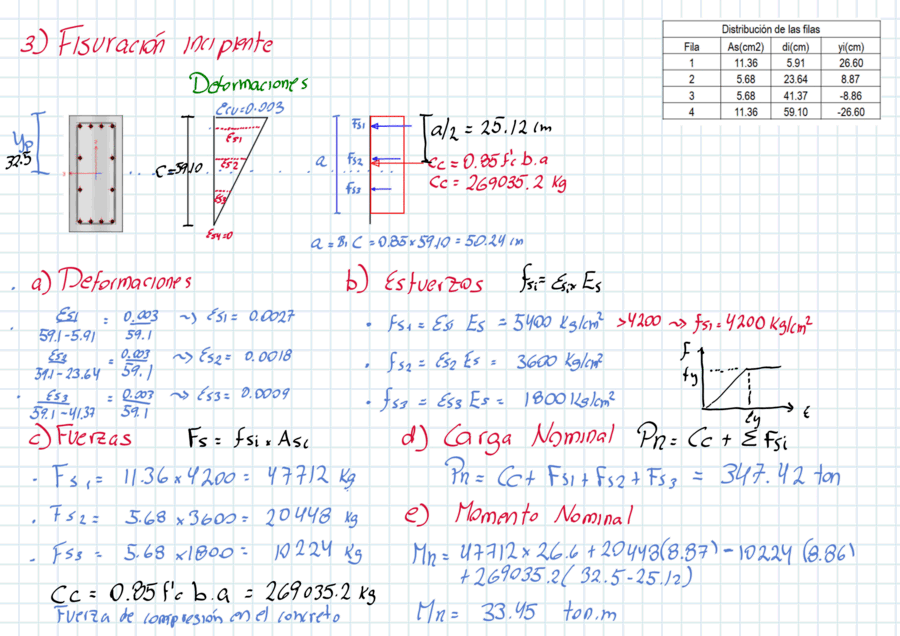 3) Fisuración incipiente
Distribución de las filas
Fila As(cm2) di(cm) yi(cm)
1 11.36 5.91 26.60
2 5.68 23.64 8.87
3 5.68 41.37 -8.86
4 11.36 59.10 -26.60
Deformaciones
εcu=0.003
yp
32.5
C=59.10
εs1
εs2
εs3
εs4=0
a
Fs1
fs2
fs3
a/2 = 25.12 cm
Cc = 0.85 f'c b.a
Cc = 269035.2 Kg
a = β1 C = 0.85x59.10 = 50.24 cm
a) Deformaciones
εs1/59.1-5.91 = 0.003/59.1 ~> εs1= 0.0027
εs2/59.1-23.64 = 0.003/59.1 ~> εs2= 0.0018
εs3/59.1-41.37 = 0.003/59.1 ~> εs3= 0.0009
b) Esfuerzos fsi= εsi x Es
• fs1 = εs1 Es = 5400 Kg/cm² >4200 ~> fs1= 4200 Kg/cm²
• fs2 = εs2 Es = 3600 Kg/cm²
• fs3 = εs3 Es = 1800 Kg/cm²
f
fy
εy
ε
c) Fuerzas Fs = fsi x Asi
• Fs1 = 11.36 x 4200 = 47712 Kg
• Fs2 = 5.68 x 3600 = 20448 Kg
• Fs3 = 5.68 x 1800 = 10224 Kg
Cc = 0.85 f'c b.a = 269035.2 Kg
Fuerza de compresión en el concreto
d) Carga Nominal Pn = Cc + Σ Fsi
Pn = Cc + Fs1 + Fs2 + Fs3 = 347.42 ton
e) Momento Nominal
Mn = 47712 x 26.6 + 20448(8.87) - 10224 (8.86)
+ 269035.2( 32.5 - 25.12)
Mn = 33.45 ton.m